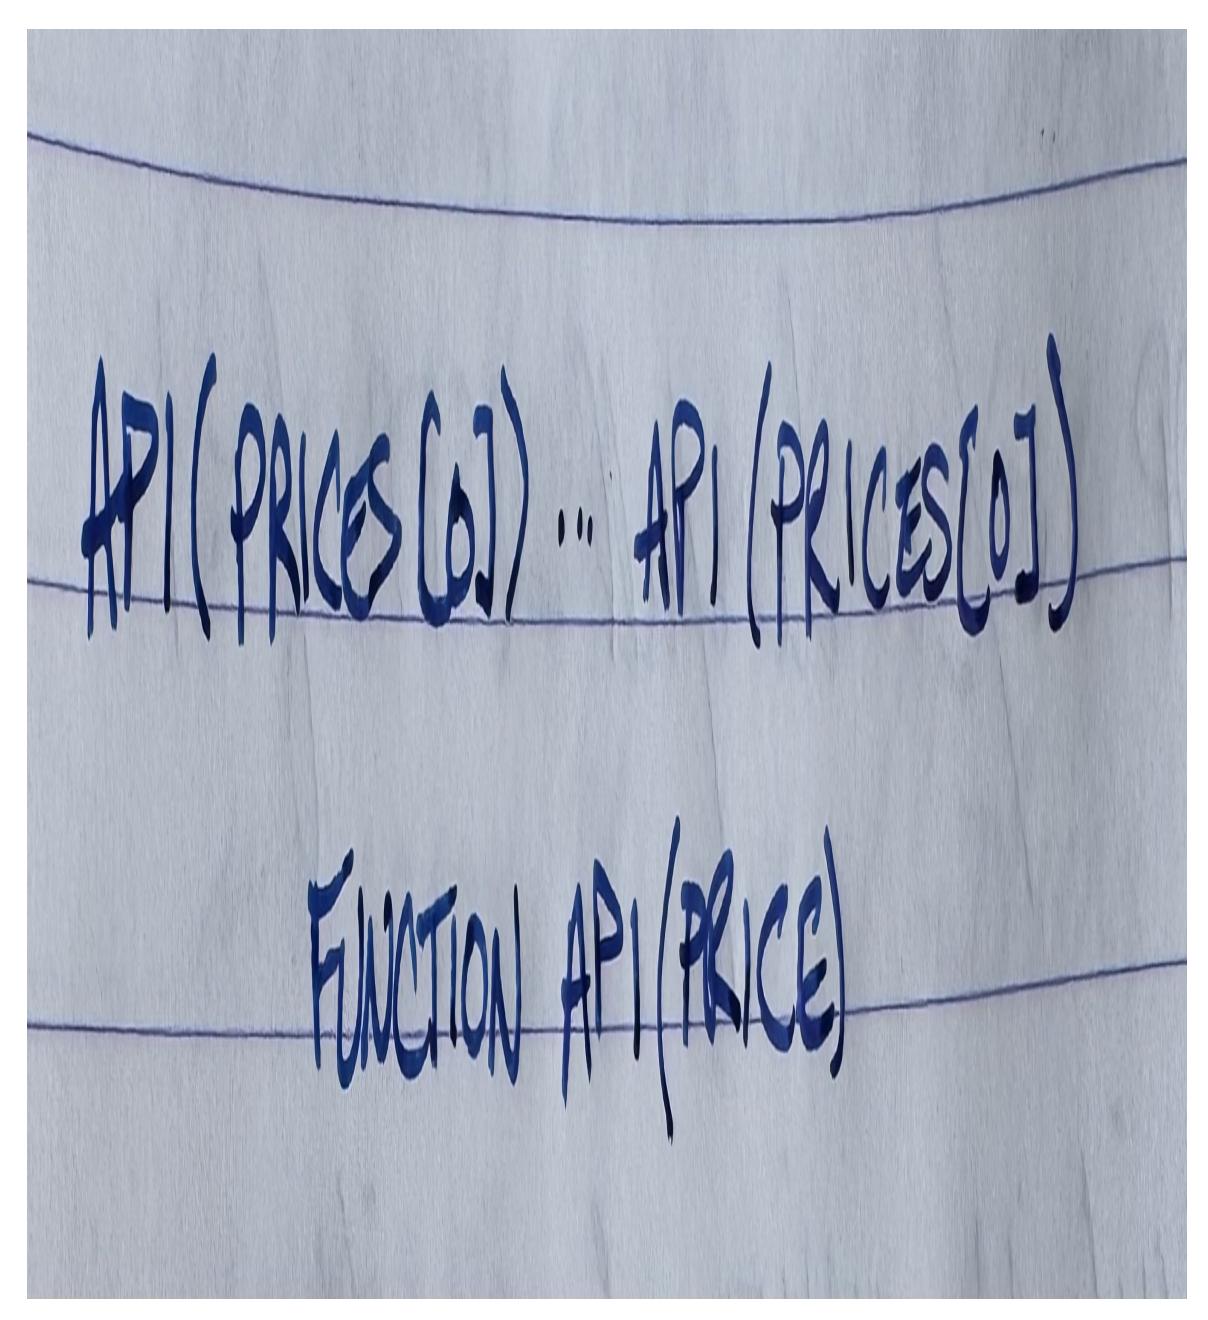 API(PRICES[0]) ... API(PRICES[0])
FUNCTION API(PRICE)